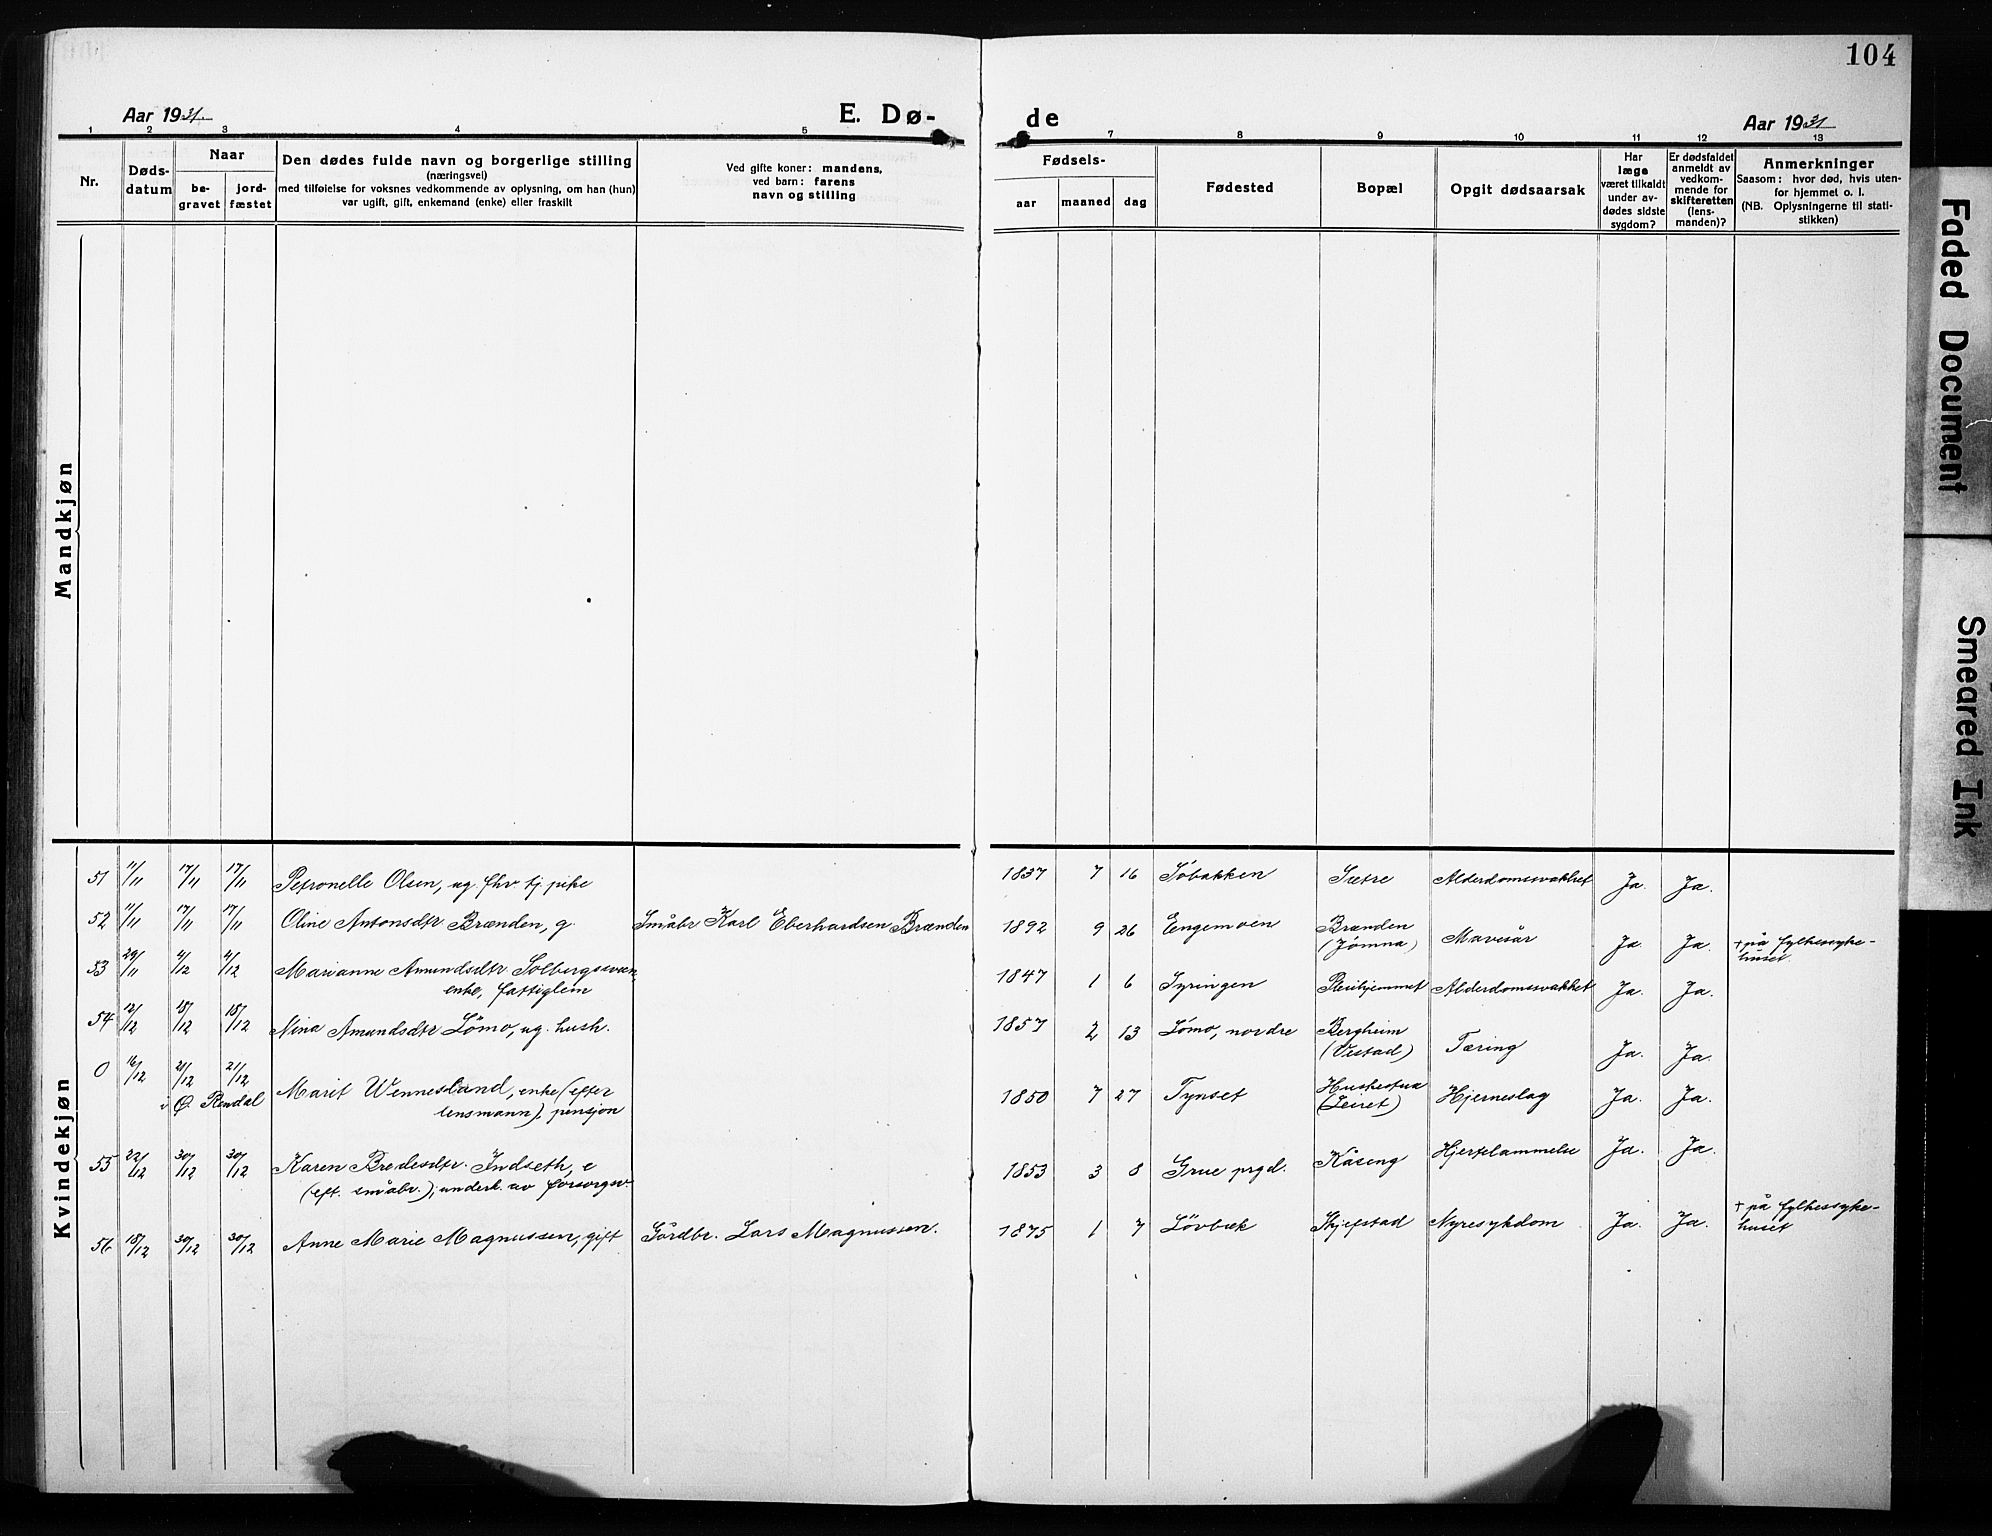 104
Aar 1931. E. Dø- de Aar 1931
1 2 3 4 5 7 8 9 10 11 12 13
Nr.
Døds-
datum
Naar
be-
gravet
jord-
fæstet
Den dødes fulde navn og borgerlige stilling
(næringsvei)
med tilføielse for voksnes vedkommende av oplysning, om han (hun)
var ugift, gift, enkemand (enke) eller fraskilt
Ved gifte koner: mandens,
ved barn: farens
navn og stilling
Fødsels-
aar maaned dag
Fødested
Bopæl
Opgit dødsaarsak
Har
læge
været tilkaldt
under av-
dødes sidste
sygdom?
Er dødsfaldet
anmeldt av
vedkom-
mende for
skifteretten
(lens-
manden)?
Anmerkninger
Saasom: hvor død, hvis uten-
for hjemmet o. l.
(NB. Oplysningerne til stati-
stikken)
Mandkjøn
Kvindekjøn
51 11/11 17/11 17/11 Petronelle Olsen, ug. fhv. tj. pike 1837 7 16 Søbakken Sætre Alderdomssvakhet Ja. Ja.
52 11/11 17/11 17/11 Oline Antonsdtr Brænden, g. Småbr Karl Eberhardsen Brænden 1892 9 26 Engemoen Brænden
(Jømna) Mavesår Ja Ja. + på fylkessyke-
huset.
53 29/11 4/12 4/12 Marianne Amundsdtr Solbergsveen,
enke, fattiglem 1847 1 6 Syringen Pleiehjemmet Alderdomssvakhet Ja. Ja.
54 12/12 18/12 18/12 Nina Amundsdtr Lömo, ug. hush. 1857 2 13 Lömo, nordre Bergheim
(Vestad) Tæring Ja. Ja.
0 16/12 21/12 21/12 Marit Wennesland, enke (efter
i Ø. Rendal lensmann), pensjon 1850 7 27 Tynset Huskestua
(Leiret) Hjerneslag Ja. Ja.
55 22/12 30/12 30/12 Karen Bredesdtr. Indseth, e
(eft. småbr.), underh. av forsorgsv. 1853 3 8 Grue prgd. Kåseng Hjertelammelse Ja. Ja.
56 18/12 30/12 30/12 Anne Marie Magnussen, gift Gårdbr. Lars Magnussen. 1875 1 7 Lövbæk Skjefstad Nyresykdom Ja. Ja. + på fylkessyke-
huset
Faded Document
Smeared Ink